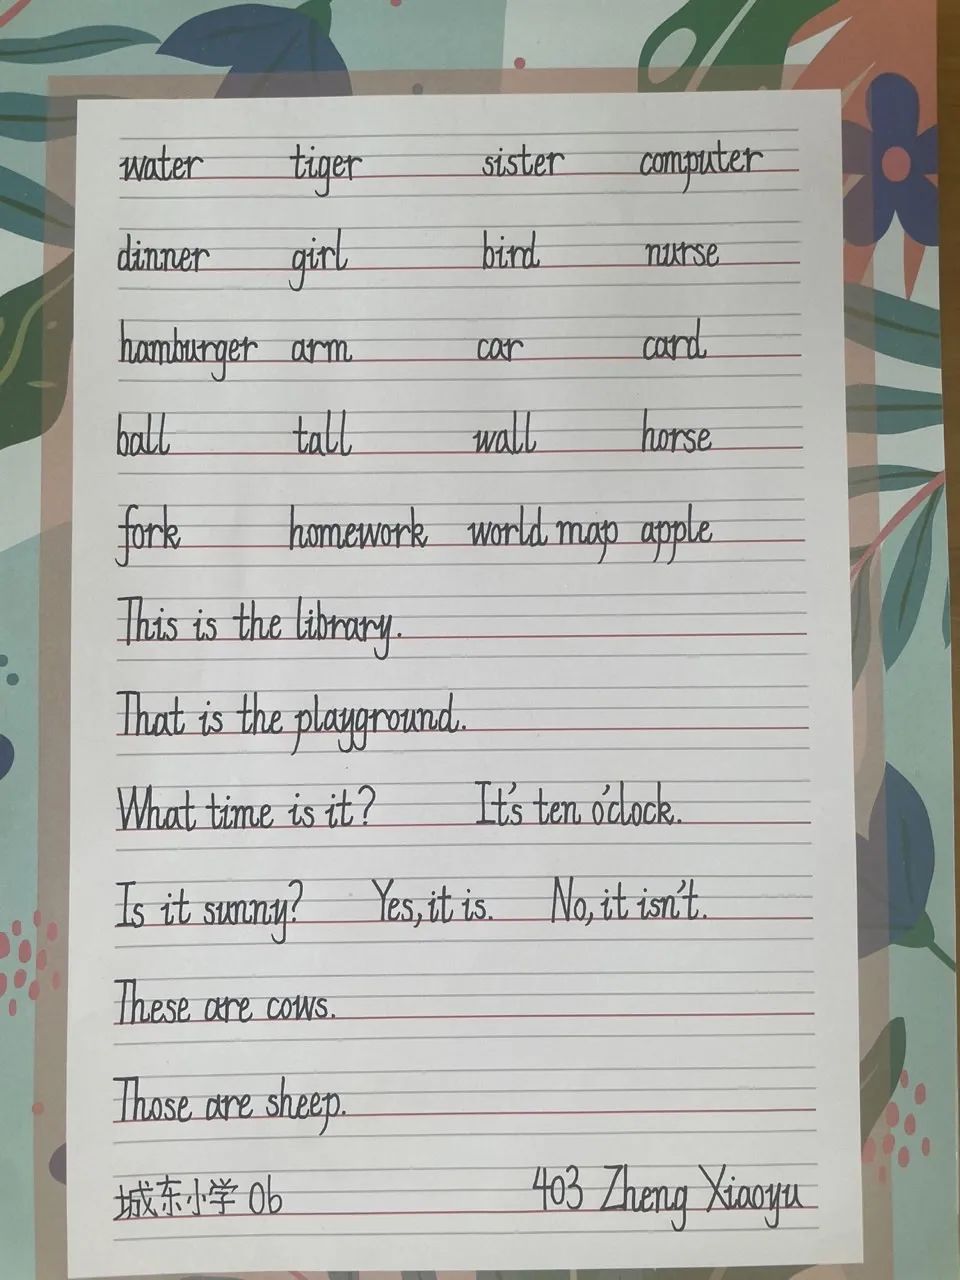 water tiger sister computer
dinner girl bird nurse
hamburger arm car card
ball tall wall horse
fork homework world map apple
This is the library.
That is the playground.
What time is it? It's ten o'clock.
Is it sunny? Yes, it is. No, it isn't.
These are cows.
Those are sheep.
城东小学 06 403 Zheng Xiaoyu